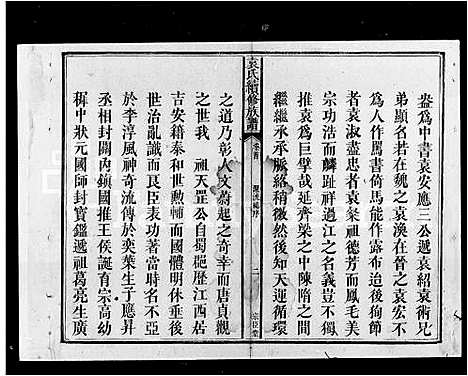 盎爲中書袁安應三公遞袁紹袁術兄
弟顯名若在魏之袁渙在晉之袁宏不
爲人作馬能作露布迨後狗節
者袁淑盡忠者袁粲祖德芳而鳳毛美
宗功浩而麟趾祥過江之名義豈不獨
推袁爲巨擘哉延齊梁之中陳隋之間
繼繼承承脈絡稍微然後知天運循環
袁氏續修族譜
卷首
源流總序
二
之道乃彰人文蔚起之奇幸而唐貞觀
之世我 祖天罡公自蜀 歷江西居
吉安籍泰和世勲輔而國體明休垂後
世治亂識而良臣表功著當時名不亞
於李淳風神奇流傳於奕葉生子應昇
丞相封閣內鎮國推王侯誕育宗高幼
稱中狀元國師封寳鑑遞祖葛亮生廣